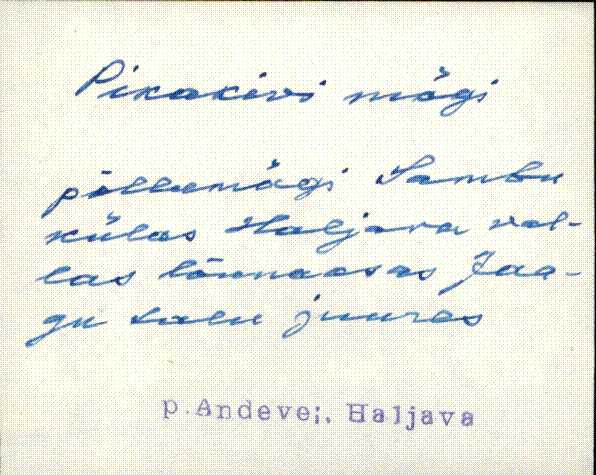 Pikakivi mägi
põllumägi Sambu
külas Haljava val-
las lõunaosas Jaa-
gu talu juures
p.Andevei, Haljava